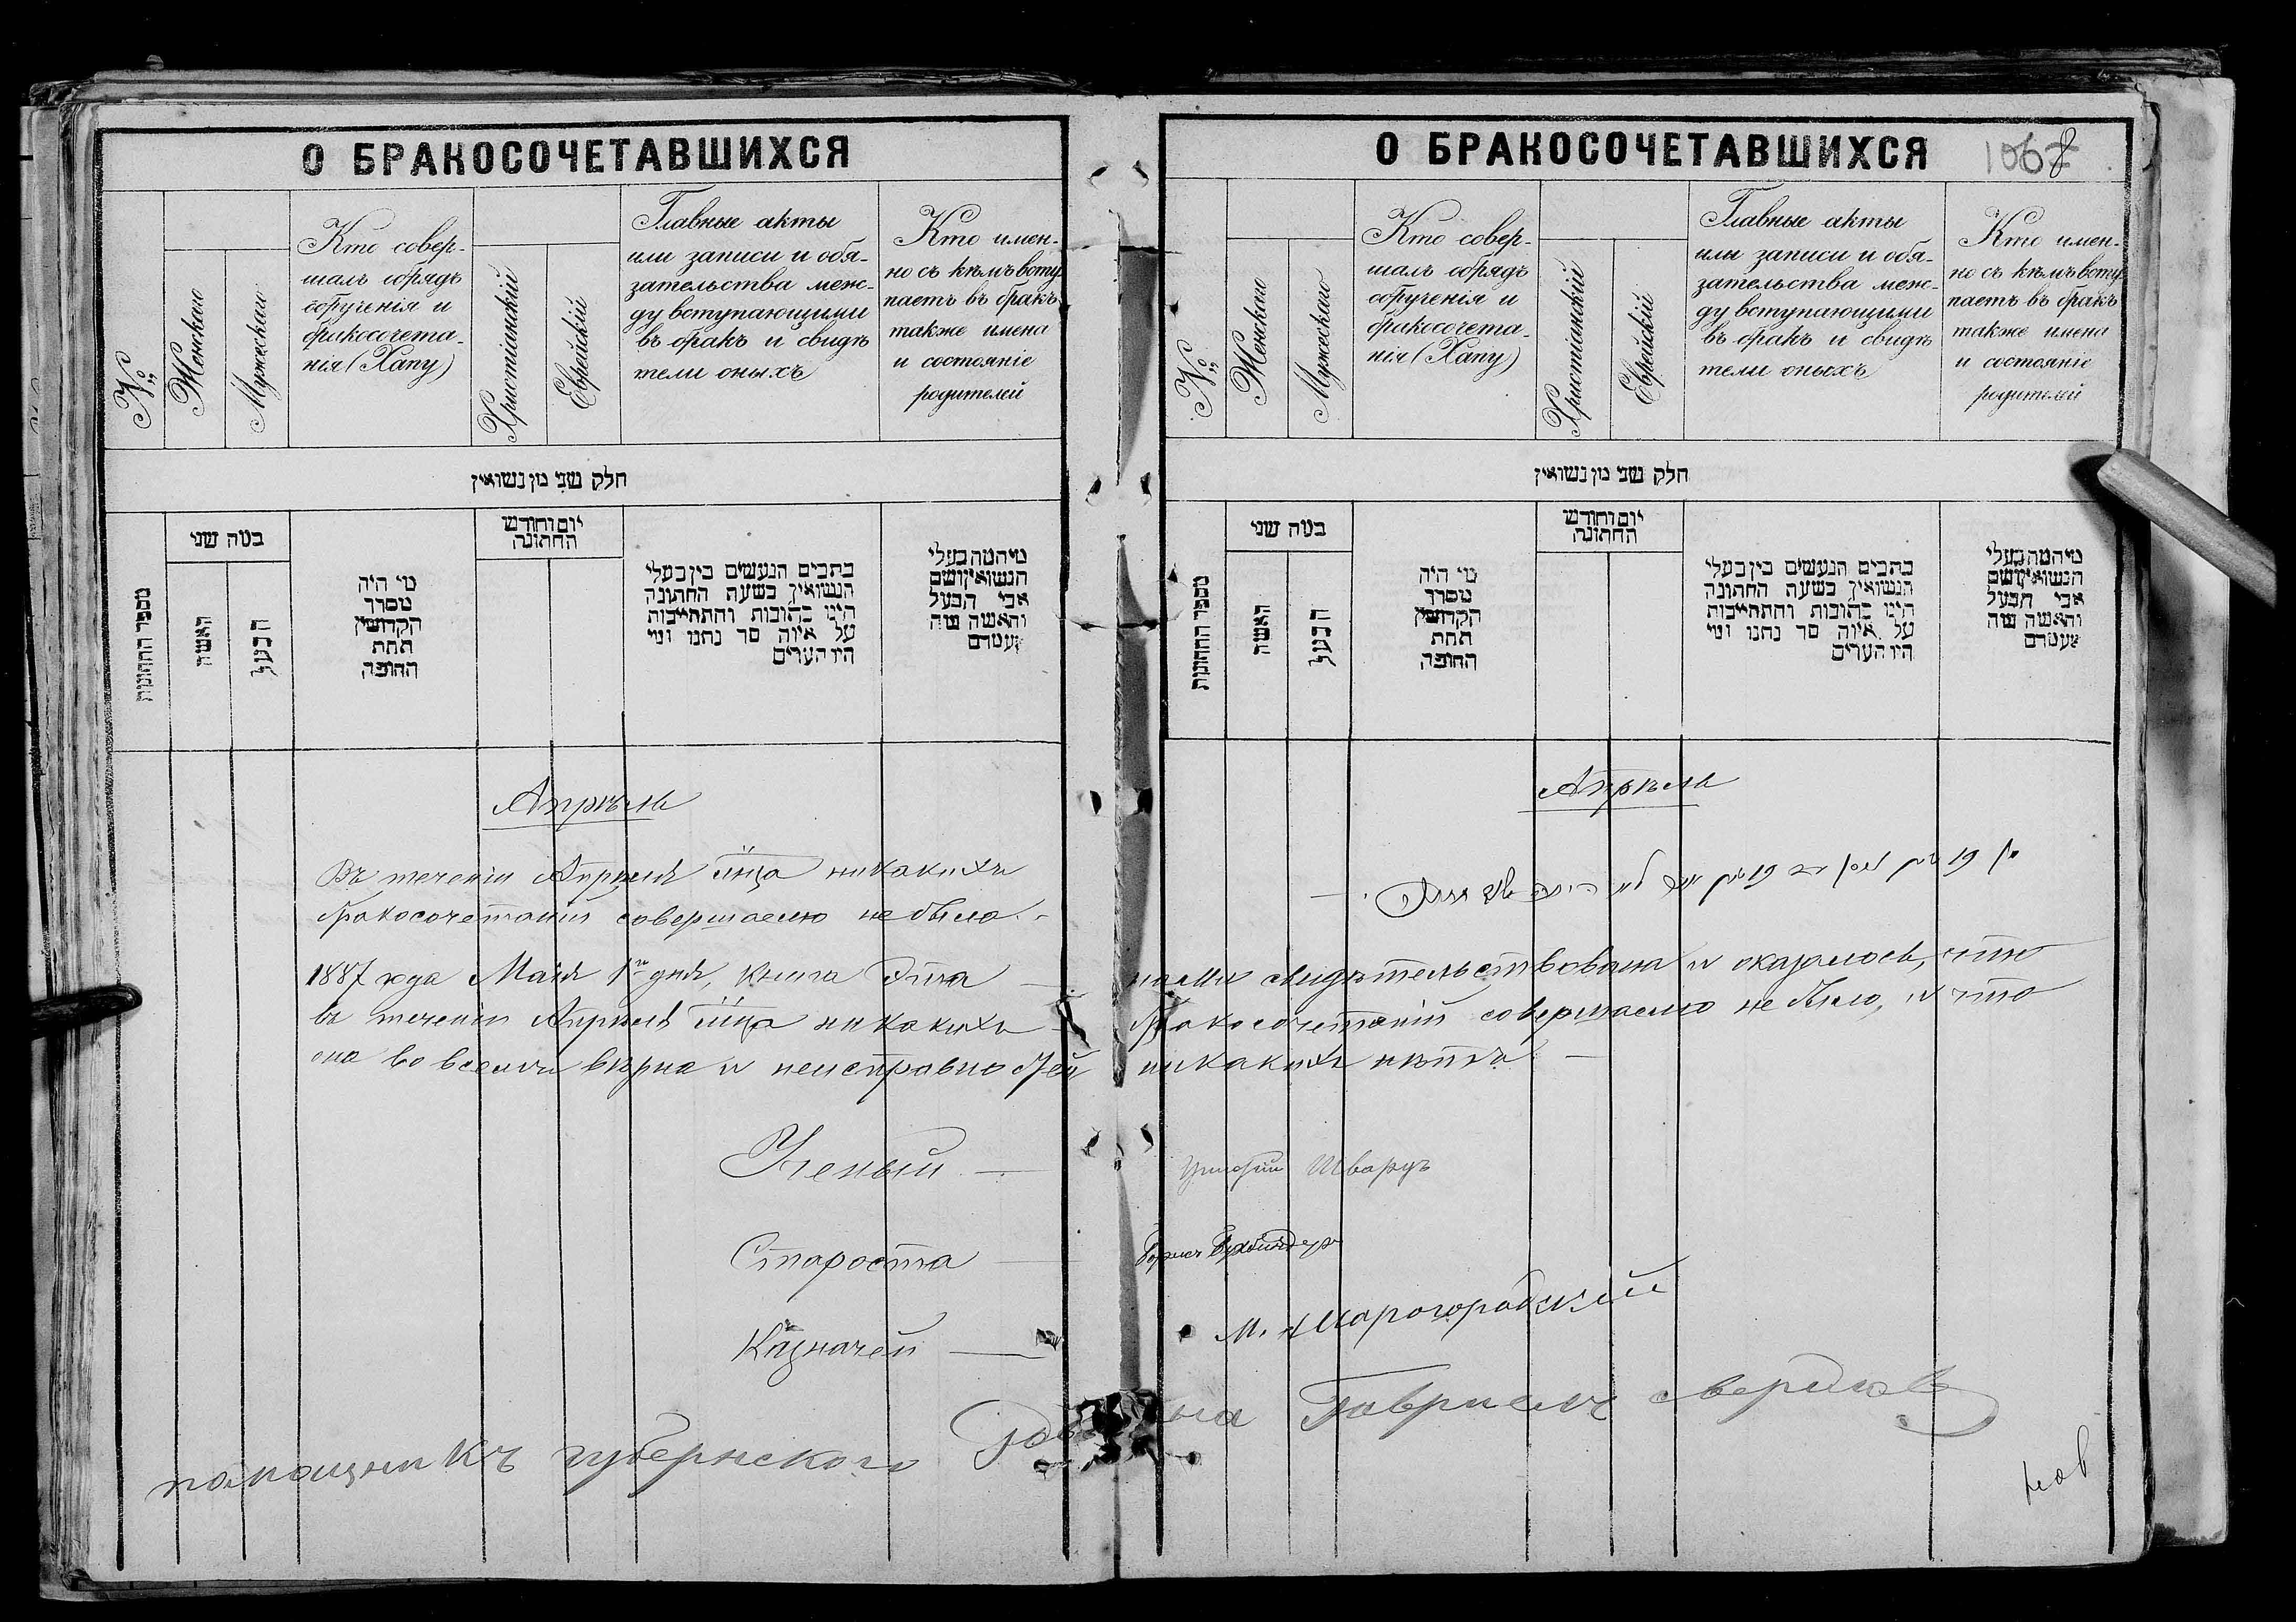 О БРАКОСОЧЕТАВШИХСЯ
№
Женскаго
Мужескаго
Кто совер-
шалъ обрядъ
обрученія и
бракосочета-
нія (Хапу)
Христіанскій
Еврейскій
Главные акты
или записи и обя-
зательства меж-
ду вступающими
въ бракъ и свидѣ
тели оныхъ
Кто имен-
но съ кѣмъ всту
паетъ въ бракъ
также имена
и состояніе
родителей
חלק שני מן נשואין
מספר החתונות
כמה שני
האשה
הבעל
מי היה
מסדר
הקדושין
תחת
החופה
יום וחודש
החתונה
כתבים הנעשים בין בעלי
הנשואין בשעת החתונה
היינו כתובות והתחייבות
על איזה סך נתנו ומי
היו העדים
מי המה בעלי
הנשואין ושם
אבי הבעל
והאשה ומה
מעמדם
Апрѣль
Въ теченіи Апрѣля м̃ца никакихъ
бракосочетаній совершаемо не было.
1887 года Мая 1го дня, книга эта
въ теченіи Апрѣля м̃ца никакихъ
она во всемъ вѣрна и неисправностей
Ученый
Староста
Казначей
помощникъ губернского
О БРАКОСОЧЕТАВШИХСЯ
106
№
Женскаго
Мужескаго
Кто совер-
шалъ обрядъ
обрученія и
бракосочета-
нія (Хапу)
Христіанскій
Еврейскій
Главные акты
или записи и обя-
зательства меж-
ду вступающими
въ бракъ и свидѣ
тели оныхъ
Кто имен-
но съ кѣмъ всту
паетъ въ бракъ
также имена
и состояніе
родителей
חלק שני מן נשואין
מספר החתונות
כמה שני
האשה
הבעל
מי היה
מסדר
הקדושין
תחת
החופה
יום וחודש
החתונה
כתבים הנעשים בין בעלי
הנשואין בשעת החתונה
היינו כתובות והתחייבות
על איזה סך נתנו ומי
היו העדים
מי המה בעלי
הנשואין ושם
אבי הבעל
והאשה ומה
מעמדם
Апрѣль
нами свидѣтельствована и оказалось, что
бракосочетаній совершаемо не было, и что
никакихъ нѣтъ.
Шварцъ
М. Шарогородский
Гавриилъ